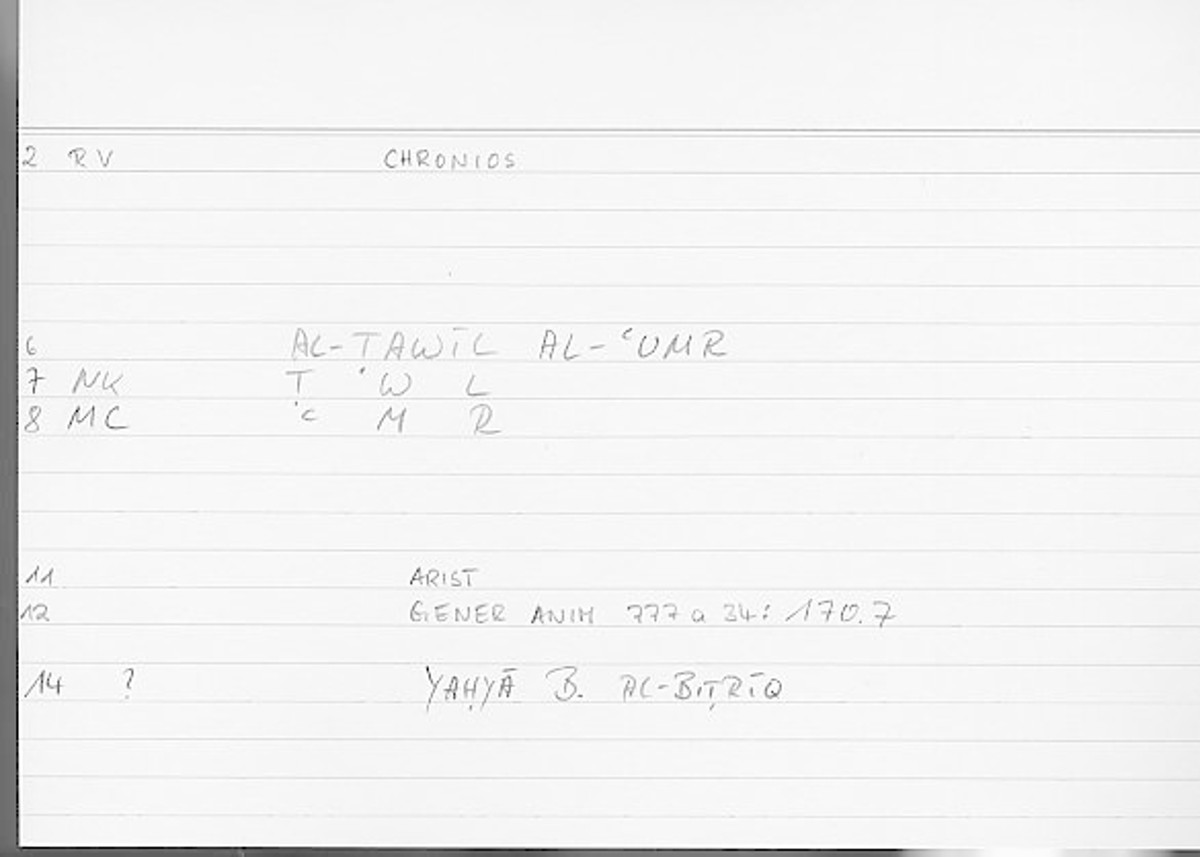 2 RV CHRONIOS
6 AL-TAWĪL AL-ʿUMR
7 NK T ʾW L
8 MC ʿ M R
11 ARIST
12 GENER ANIM 777 a 34: 170.7
14 ? YAḤYĀ B. AL-BIṬRĪQ